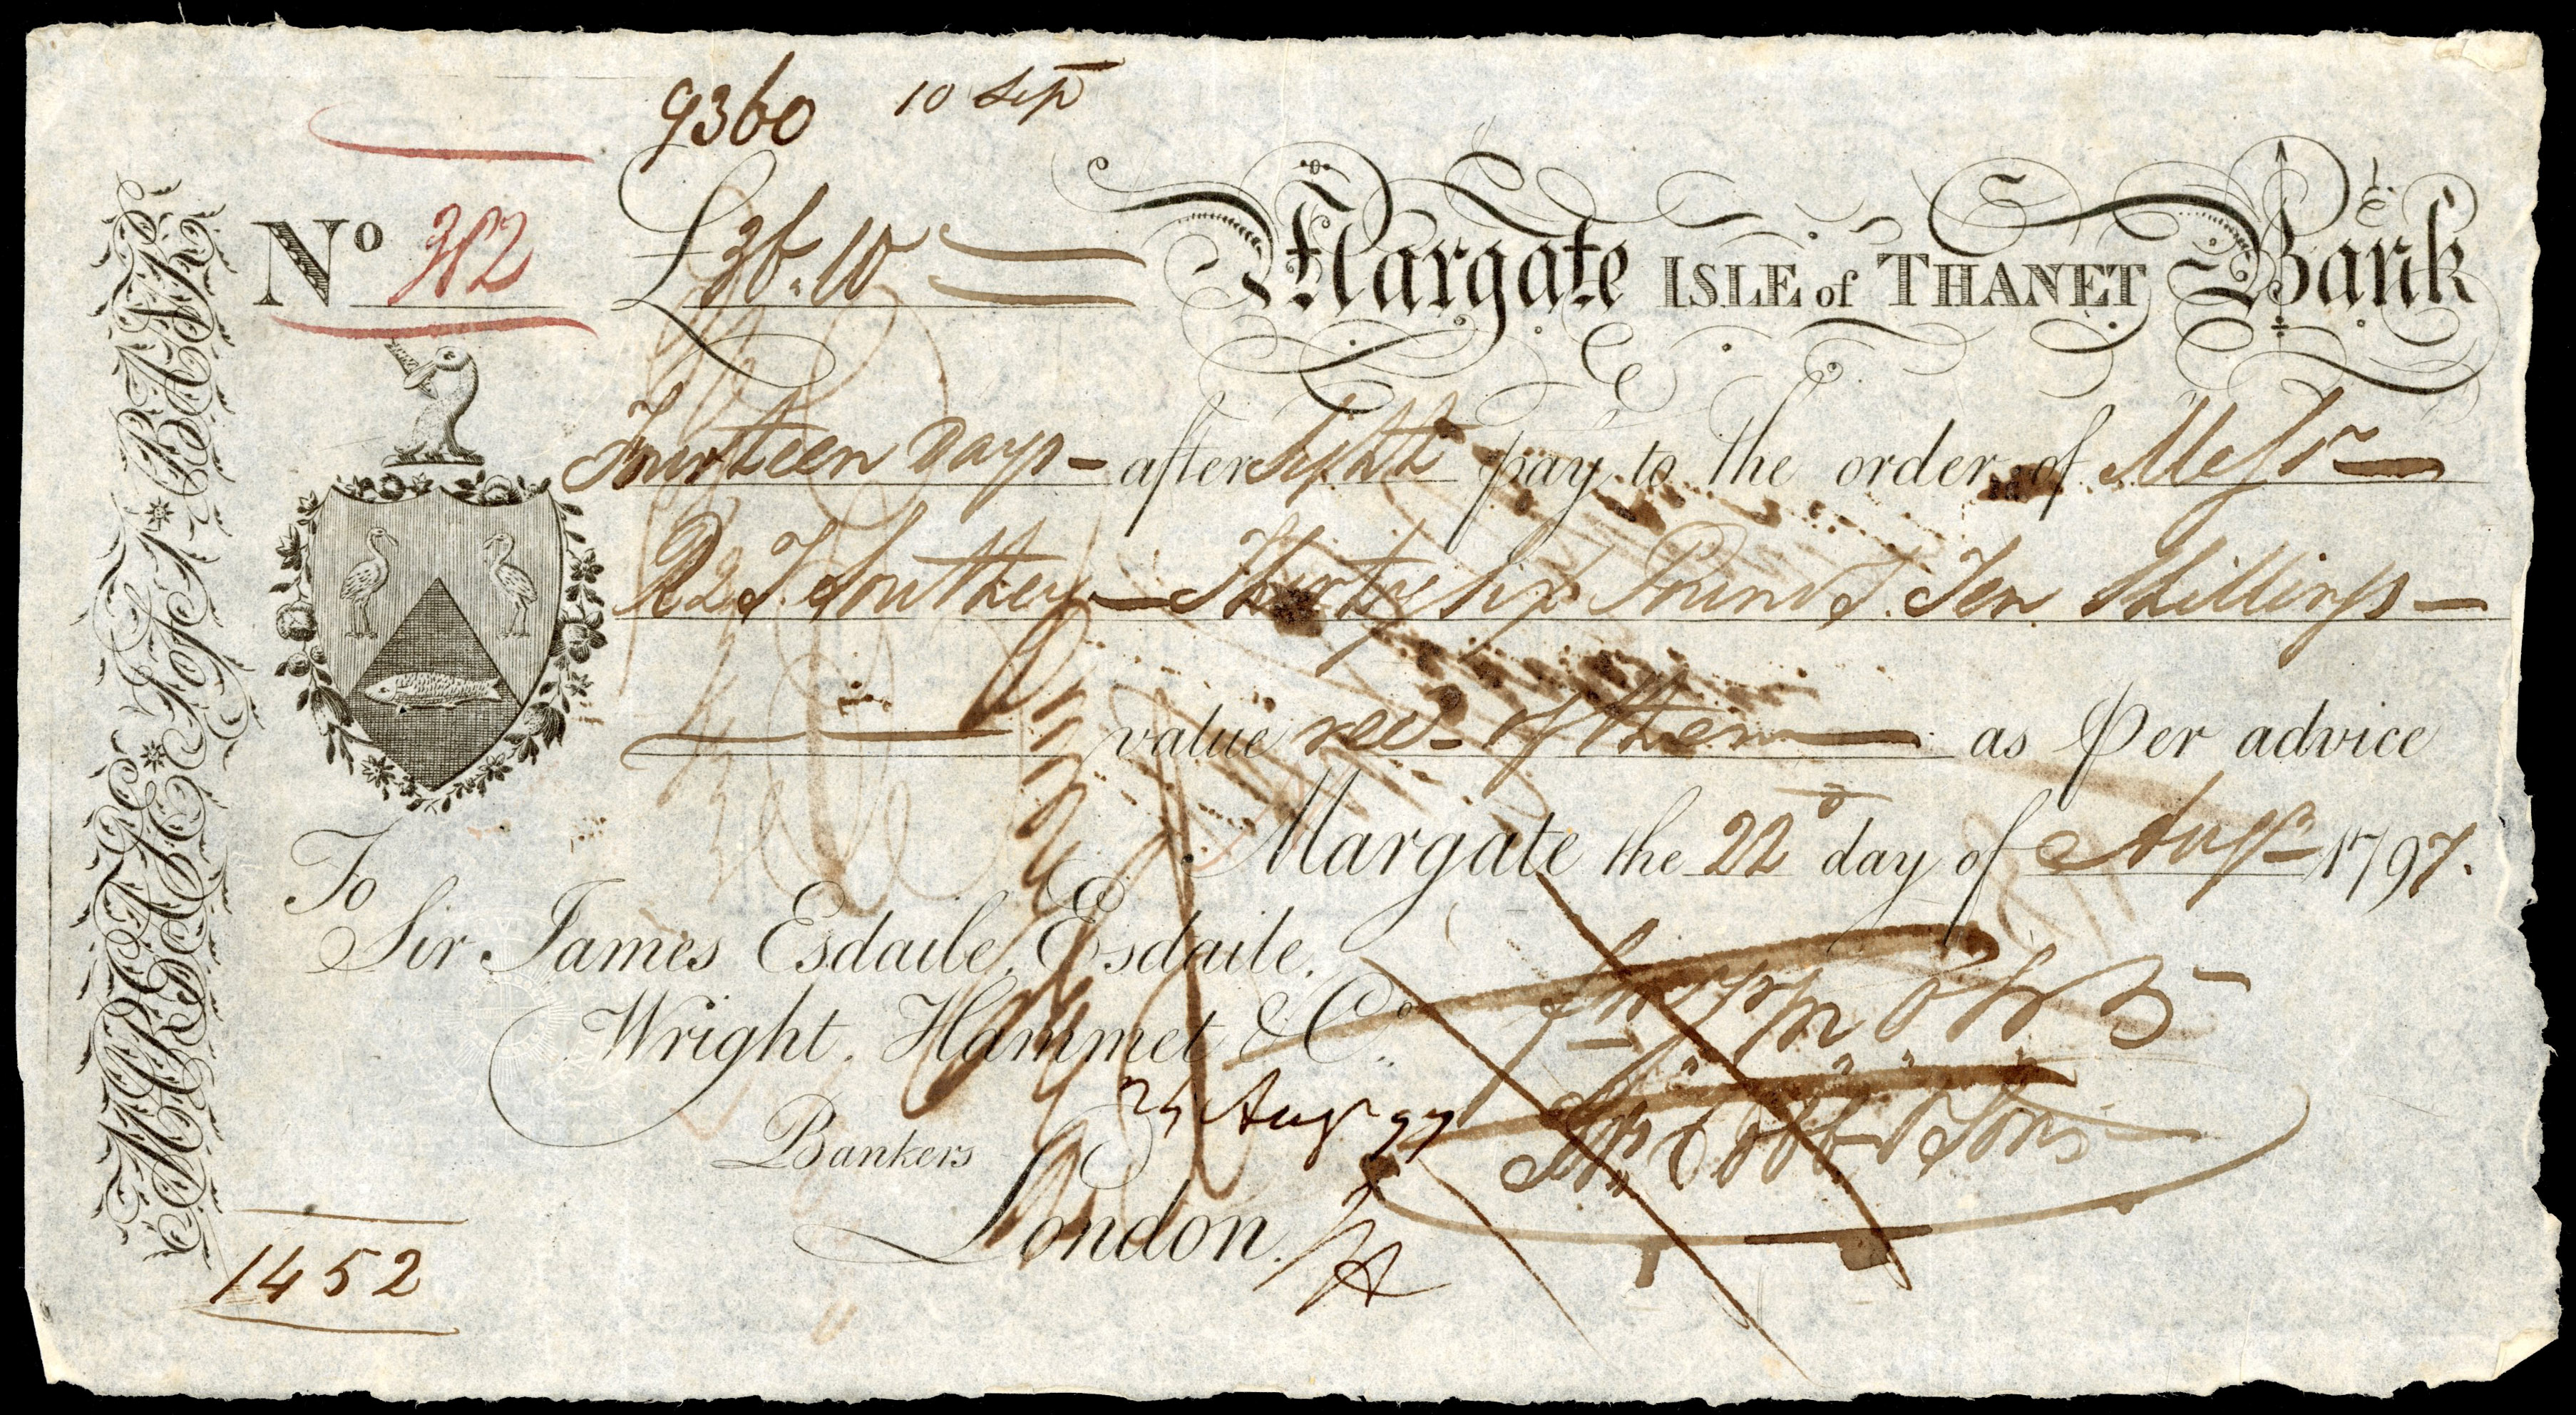 9360 10 Sep
No 312 £36.10 Margate ISLE of THANET Bank
Fourteen Days after Sight pay to the order of Messrs
R & T Southey Thirty Six Pounds Ten Shillings
value recd of them as Per advice
Margate the 22d day of Augt 1797.
To
Sir James Esdaile, Esdaile,
Wright, Hammet & Co.
Bankers
London.
Augt 97
Cobb & Sons
1452
MARGATE I. of T. BANK